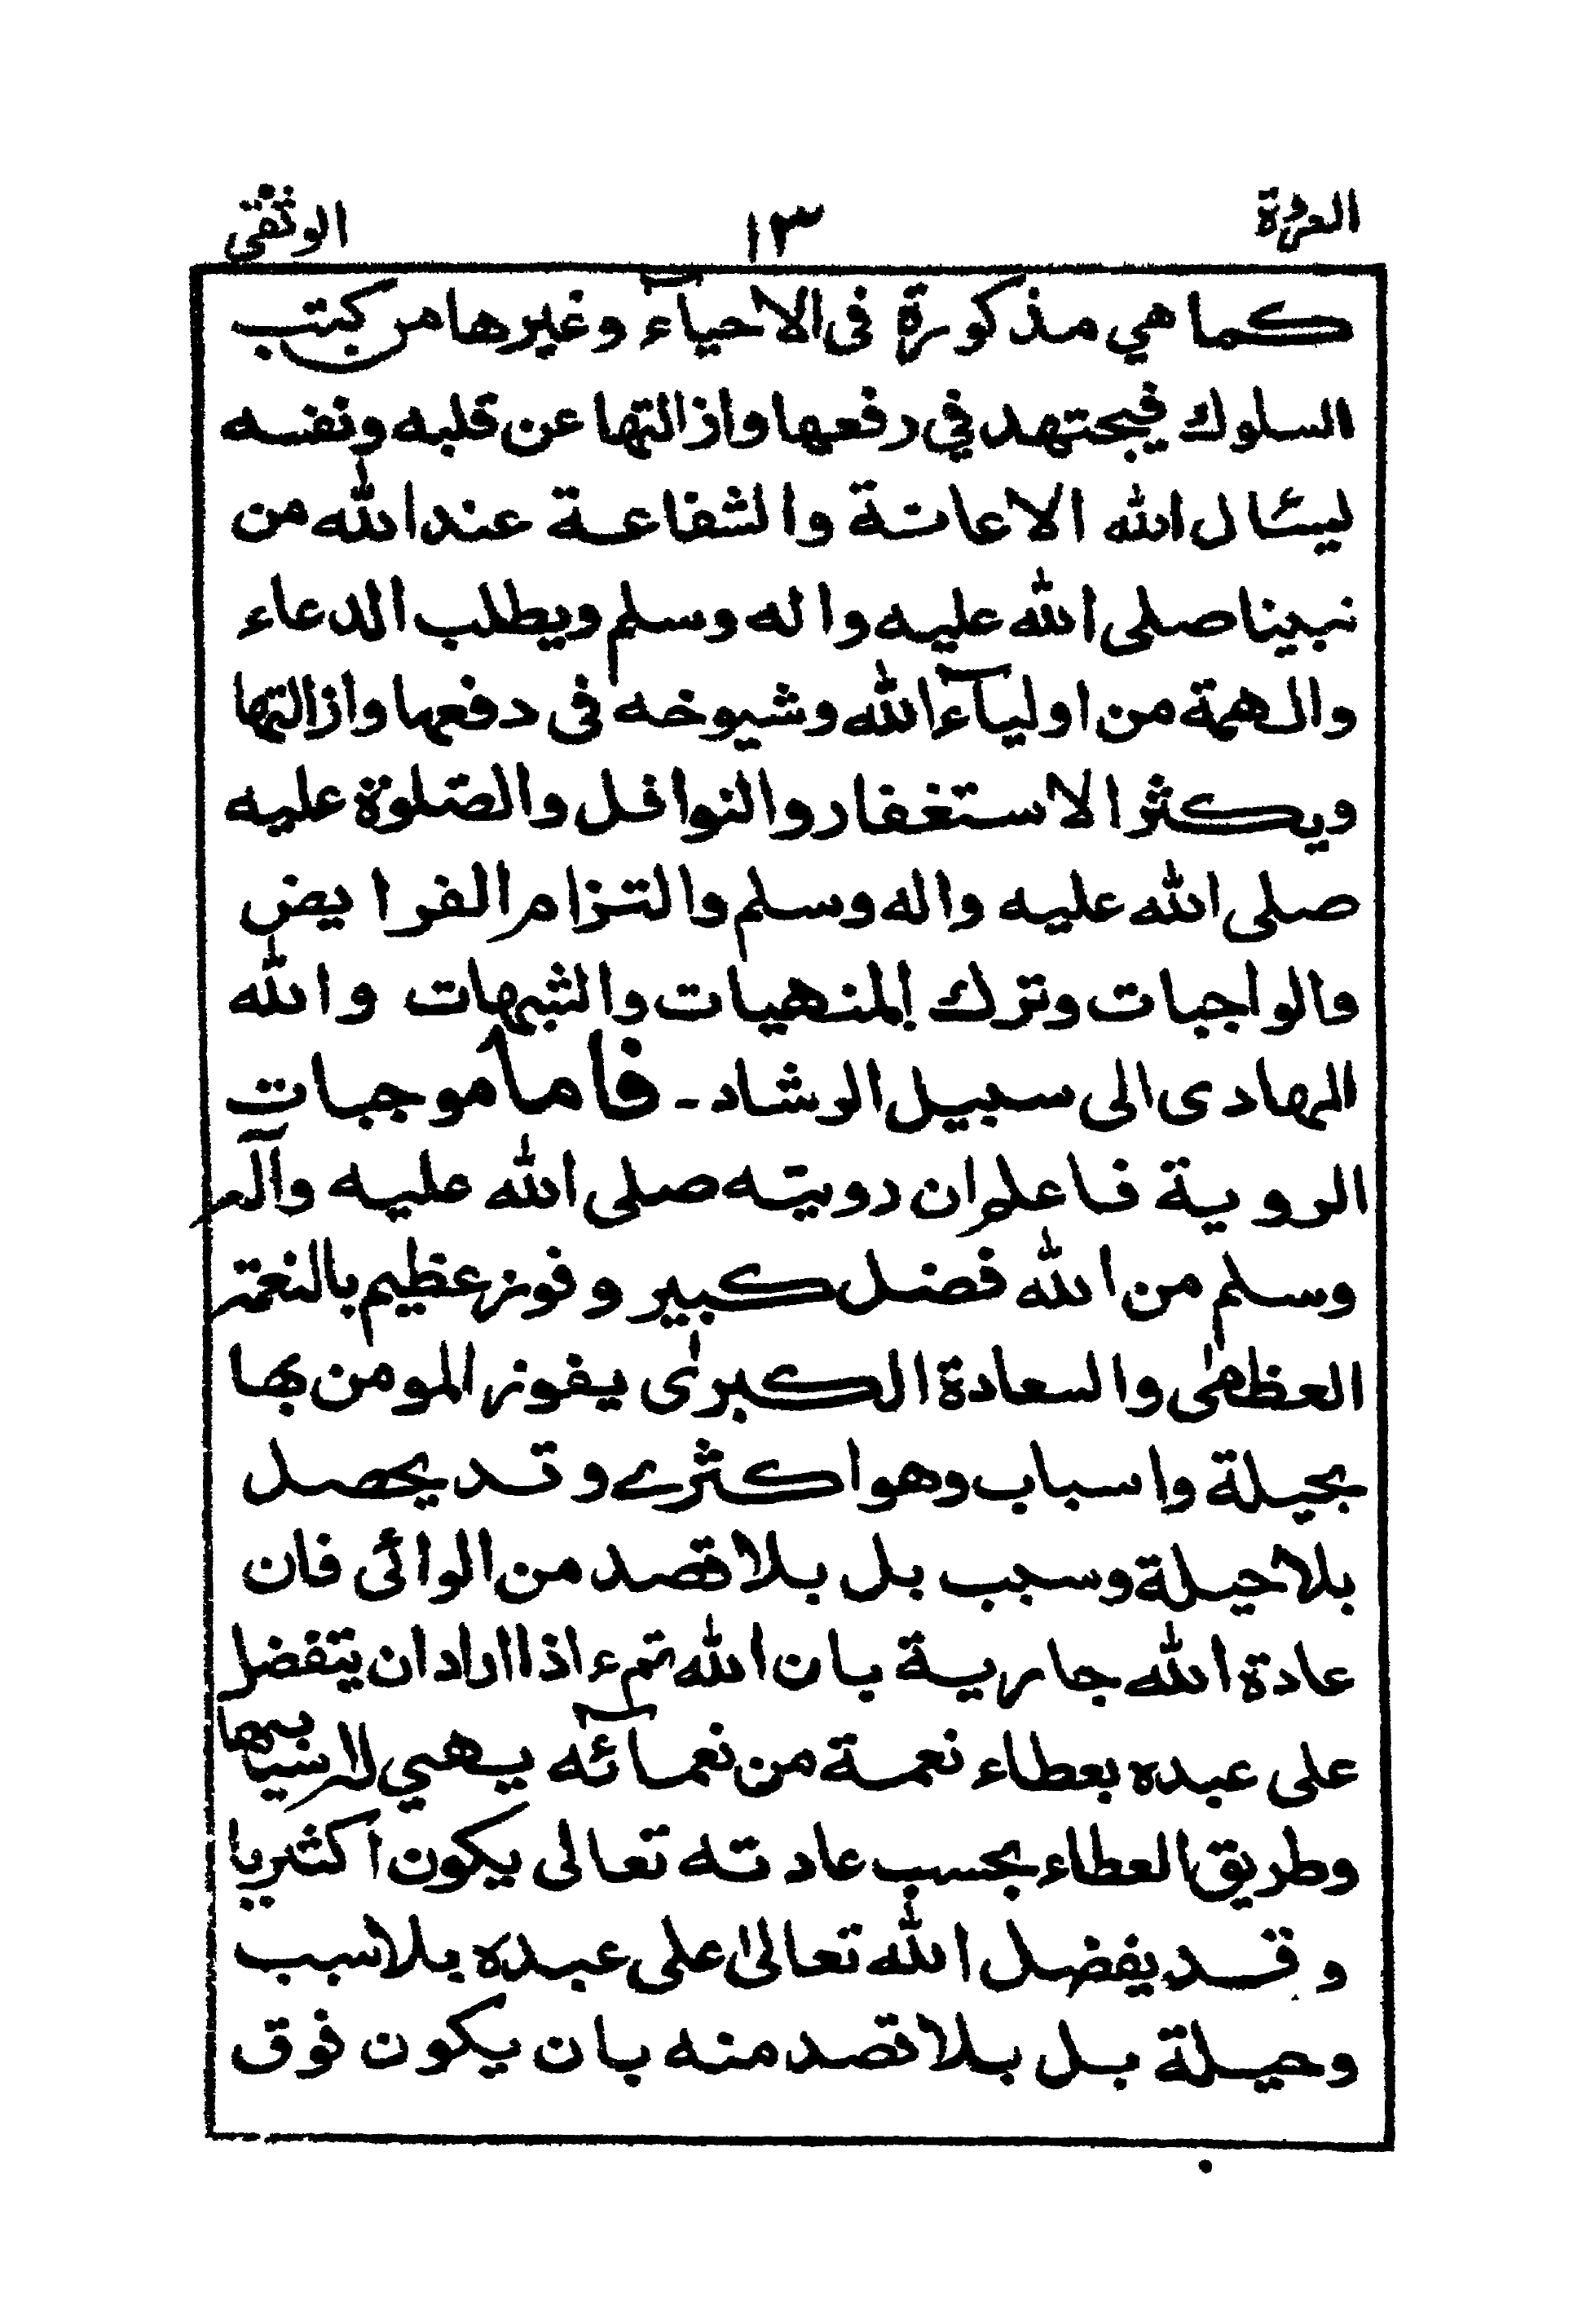 العروة ١٣ الوثقى
كما هي مذكورة فى الاحيآء وغيرها من كتب
السلوك فيجتهد في رفعها وازالتها عن قلبه ونفسه
ليسئال الله الاعانة والشفاعة عند الله من
نبينا صلى الله عليه واله وسلم ويطلب الدعاء
والهمة من اوليآء الله وشيوخه فى دفعها وازالتها
ويكثر الاستغفار والنوافل والصلوة عليه
صلى الله عليه واله وسلم والتزام الفرايض
والواجبات وترك المنهيات والشبهات والله
الهادى الى سبيل الرشاد ـ فاما موجبات
الروية فاعلم ان رويته صلى الله عليه وآله
وسلم من الله فضل كبير وفوز عظيم بالنعمة
العظمٰى والسعادة الكبرٰى يفوز المومن بها
بحيلة واسباب وهو اكثرے وقد يحصل
بلا حيلة وسبب بل بلا قصد من الرائى فان
عادة الله جارية بان الله تم ء اذا اراد ان يتفضل
على عبده بعطاء نعمة من نعمآئه يهيي له اسبابها
وطريق العطاء بحسب عادته تعالى يكون اكثريا
وقد يفضل الله تعالىٰ على عبده بلا سبب
وحيلة بل بلا قصد منه بان يكون فوق